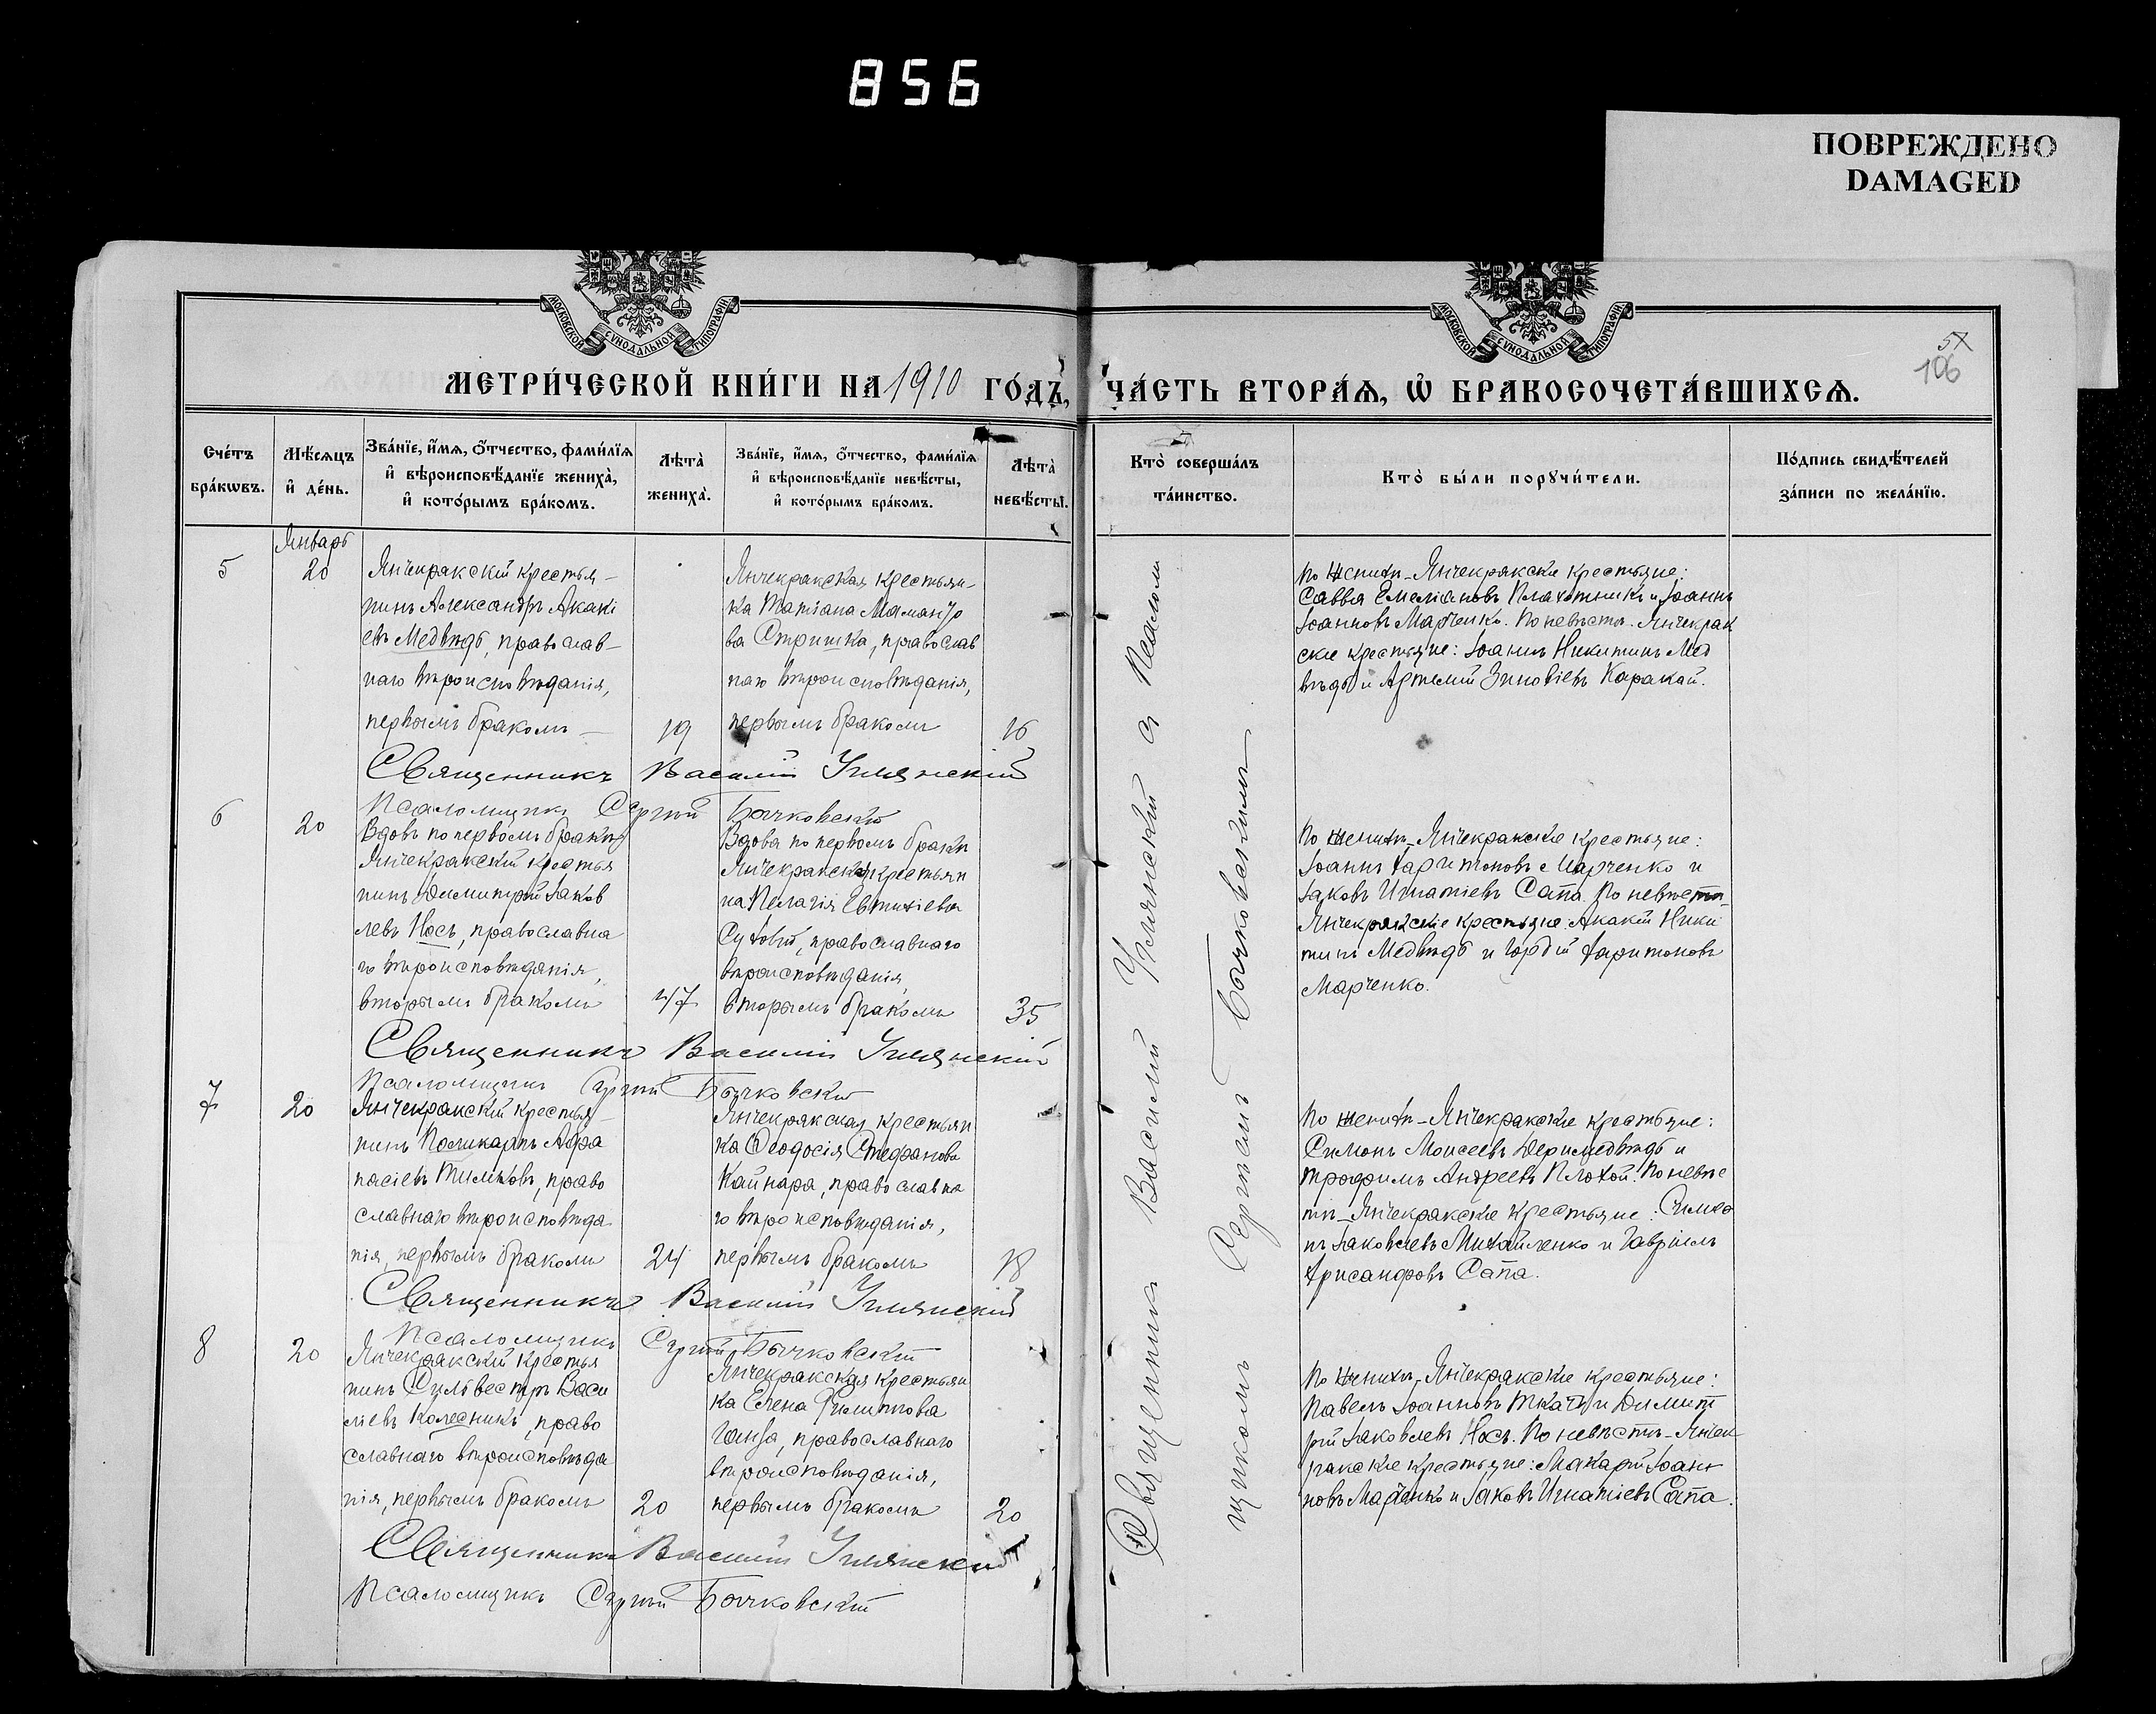 856
ПОВРЕЖДЕНО
DAMAGED
МОСКОВСКОЙ СѴНОДАЛЬНОЙ ТИПОГРАФІИ
МОСКОВСКОЙ СѴНОДАЛЬНОЙ ТИПОГРАФІИ
57
106
МЕТРИ́ЧЕСКОЙ КНИ́ГИ НА 1910 ГО́ДЪ, ЧА́СТЬ ВТОРА́Ѧ, Ѡ҆ БРАКОСОЧЕТА́ВШИХСѦ.
Сче́тъ
бра́кѡвъ.
Мѣ́сѧцъ
и҆ де́нь.
Зва́нїе, и҆́мѧ, ѻ҆́тчество, фами́лїѧ
и҆ вѣроисповѣ́данїе жениха̀,
и҆ кото́рымъ бра́комъ.
Лѣта̀
жениха̀.
Зва́нїе, и҆́мѧ, ѻ҆́тчество, фами́лїѧ
и҆ вѣроисповѣ́данїе невѣ́сты,
и҆ кото́рымъ бра́комъ.
Лѣта̀
невѣ́сты.
Кто̀ соверша́лъ
та́инство.
Кто̀ бы́ли порꙋчи́тели.
По́дпись свидѣ́телей
за́писи по жела́нїю.
Январь
5
20
Янчекракскій крестья-
нинъ Александръ Акакі
евъ Медвѣдь, православ-
наго вѣроисповѣданія,
первымъ бракомъ
19
Янчекракская крестьян-
ка Татіана Мамантo
ва Стришка, православ
наго вѣроисповѣданія,
первымъ бракомъ
16
По женихѣ-Янчекракскіе крестьяне:
Савва Емеліановъ Плахотникъ и Іоаннъ
Іоанновъ Марченко. По невѣстѣ-Янчекрак
скіе крестьяне: Іоаннъ Никитинъ Мед
вѣдь и Артемій Зиновіевъ Каракай.
Священникъ Василій Улянскій
Псаломщикъ Сергій Бычковскій
6
20
Вдовъ по первомъ бракѣ
Янчекракскій крестья
нинъ Димитрій Іаков
левъ Носъ, православна
го вѣроисповѣданія,
вторымъ бракомъ
47
Вдова по первомъ бракѣ
Янчекракская крестьян
ка Пелагія Евтихіева
православнаго
вѣроисповѣданія,
вторымъ бракомъ
35
По женихѣ-Янчекракскіе крестьяне:
Іоаннъ Харитоновъ Марченко и
Іаковъ Игнатіевъ Сапа. По невѣстѣ-
Янчекракскіе крестьяне: Акакій Ники
тинъ Медвѣдь и Гордій Харитоновъ
Марченко.
Священникъ Василій Улянскій
Псаломщикъ Сергій Бычковскій
7
20
Янчекракскій крестья-
нинъ Поликарпъ Афа
насіевъ Тимковъ, право
славнаго вѣроисповѣда
нія, первымъ бракомъ
24
Янчекракская крестьян
ка Ѳеодосія Стефанова
Кайнара, православна
го вѣроисповѣданія,
первымъ бракомъ
18
По женихѣ-Янчекракскіе крестьяне:
Симонъ Моисеевъ Деримедвѣдь и
Трофимъ Андреевъ Плохой. По невѣс
тѣ-Янчекракскіе крестьяне: Симео
нъ Іаковлевъ Михайленко и Гавріилъ
Хрисанфовъ Сапа.
Священникъ Василій Улянскій
Псаломщикъ Сергій Бычковскій
8
20
Янчекракскій крестья
нинъ Сильвестръ Васи
ліевъ Колесникъ, право
славнаго вѣроисповѣда
нія, первымъ бракомъ
20
Янчекракская крестьян
ка Елена Филиппова
Ганжа, православнаго
вѣроисповѣданія,
первымъ бракомъ
20
По женихѣ-Янчекракскіе крестьяне:
Павелъ Іоанновъ Ткачъ и Димит
рій Іаковлевъ Носъ. По невѣстѣ-Янчек
ракскіе крестьяне: Макарій Іоан
новъ Марченко и Іаковъ Игнатіевъ Сапа.
Священникъ Василій Улянскій
Псаломщикъ Сергій Бычковскій
Священникъ Василій Улянскій съ Псалом
щикомъ Сергіемъ Бычковскимъ